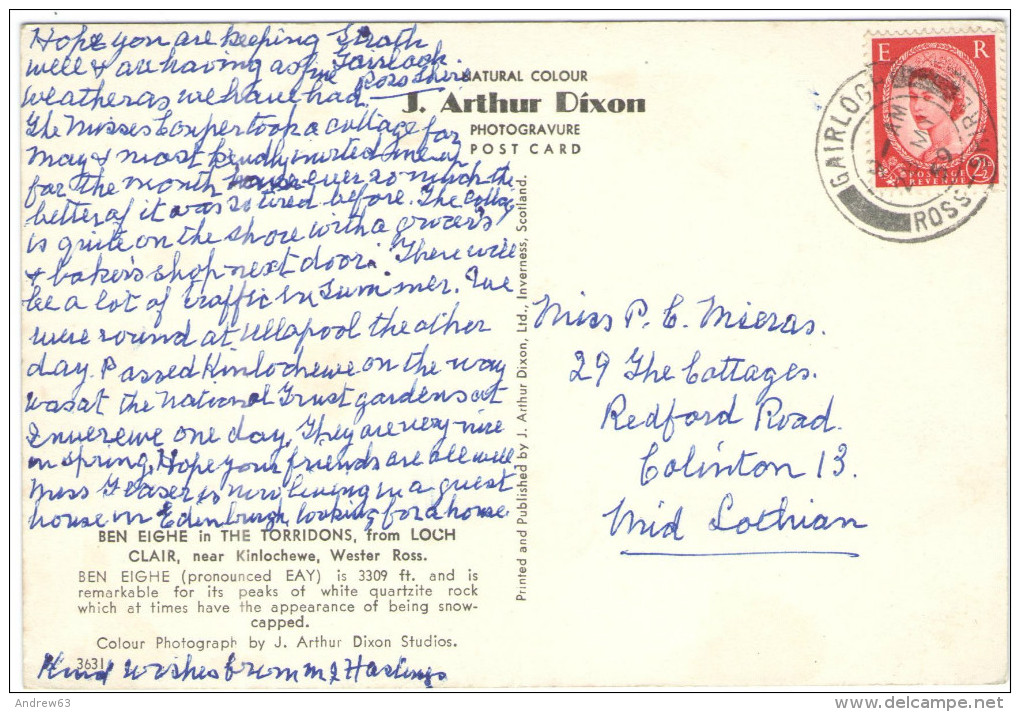 Strath
Gairloch
Ross Shire
Hope you are keeping
well & are having as fine
weather as we have had.
The Misses Couper took a cottage for
May & most kindly invited me
for the month ever so much the
better of it was so tired before. The Cottage
is quite on the shore with a grocer's
& baker's shop next door. There will
be a lot of traffic in Summer. We
were round at Ullapool the other
day. Passed Kinlochewe on the way
was at the National Trust gardens at
Inverewe one day. They are very nice
in spring. Hope your friends are all well
Miss Fraser is now living in a guest
house in Edinburgh, looking for a house
BEN EIGHE in THE TORRIDONS, from LOCH
CLAIR, near Kinlochewe, Wester Ross.
BEN EIGHE (pronounced EAY) is 3309 ft. and is
remarkable for its peaks of white quartzite rock
which at times have the appearance of being snow-
capped.
Colour Photograph by J. Arthur Dixon Studios.
3631
Kind wishes from M J Hastings
NATURAL COLOUR
J. Arthur Dixon
PHOTOGRAVURE
POST CARD
Printed and Published by J. Arthur Dixon, Ltd., Inverness, Scotland.
E R
POSTAGE
REVENUE
2½
GAIRLOCH
ROSS-SHIRE
AM
MY
59
Miss P. C. Mieras.
29 The Cottages.
Redford Road.
Colinton 13.
Mid Lothian
Andrew63
www.delcampe.net